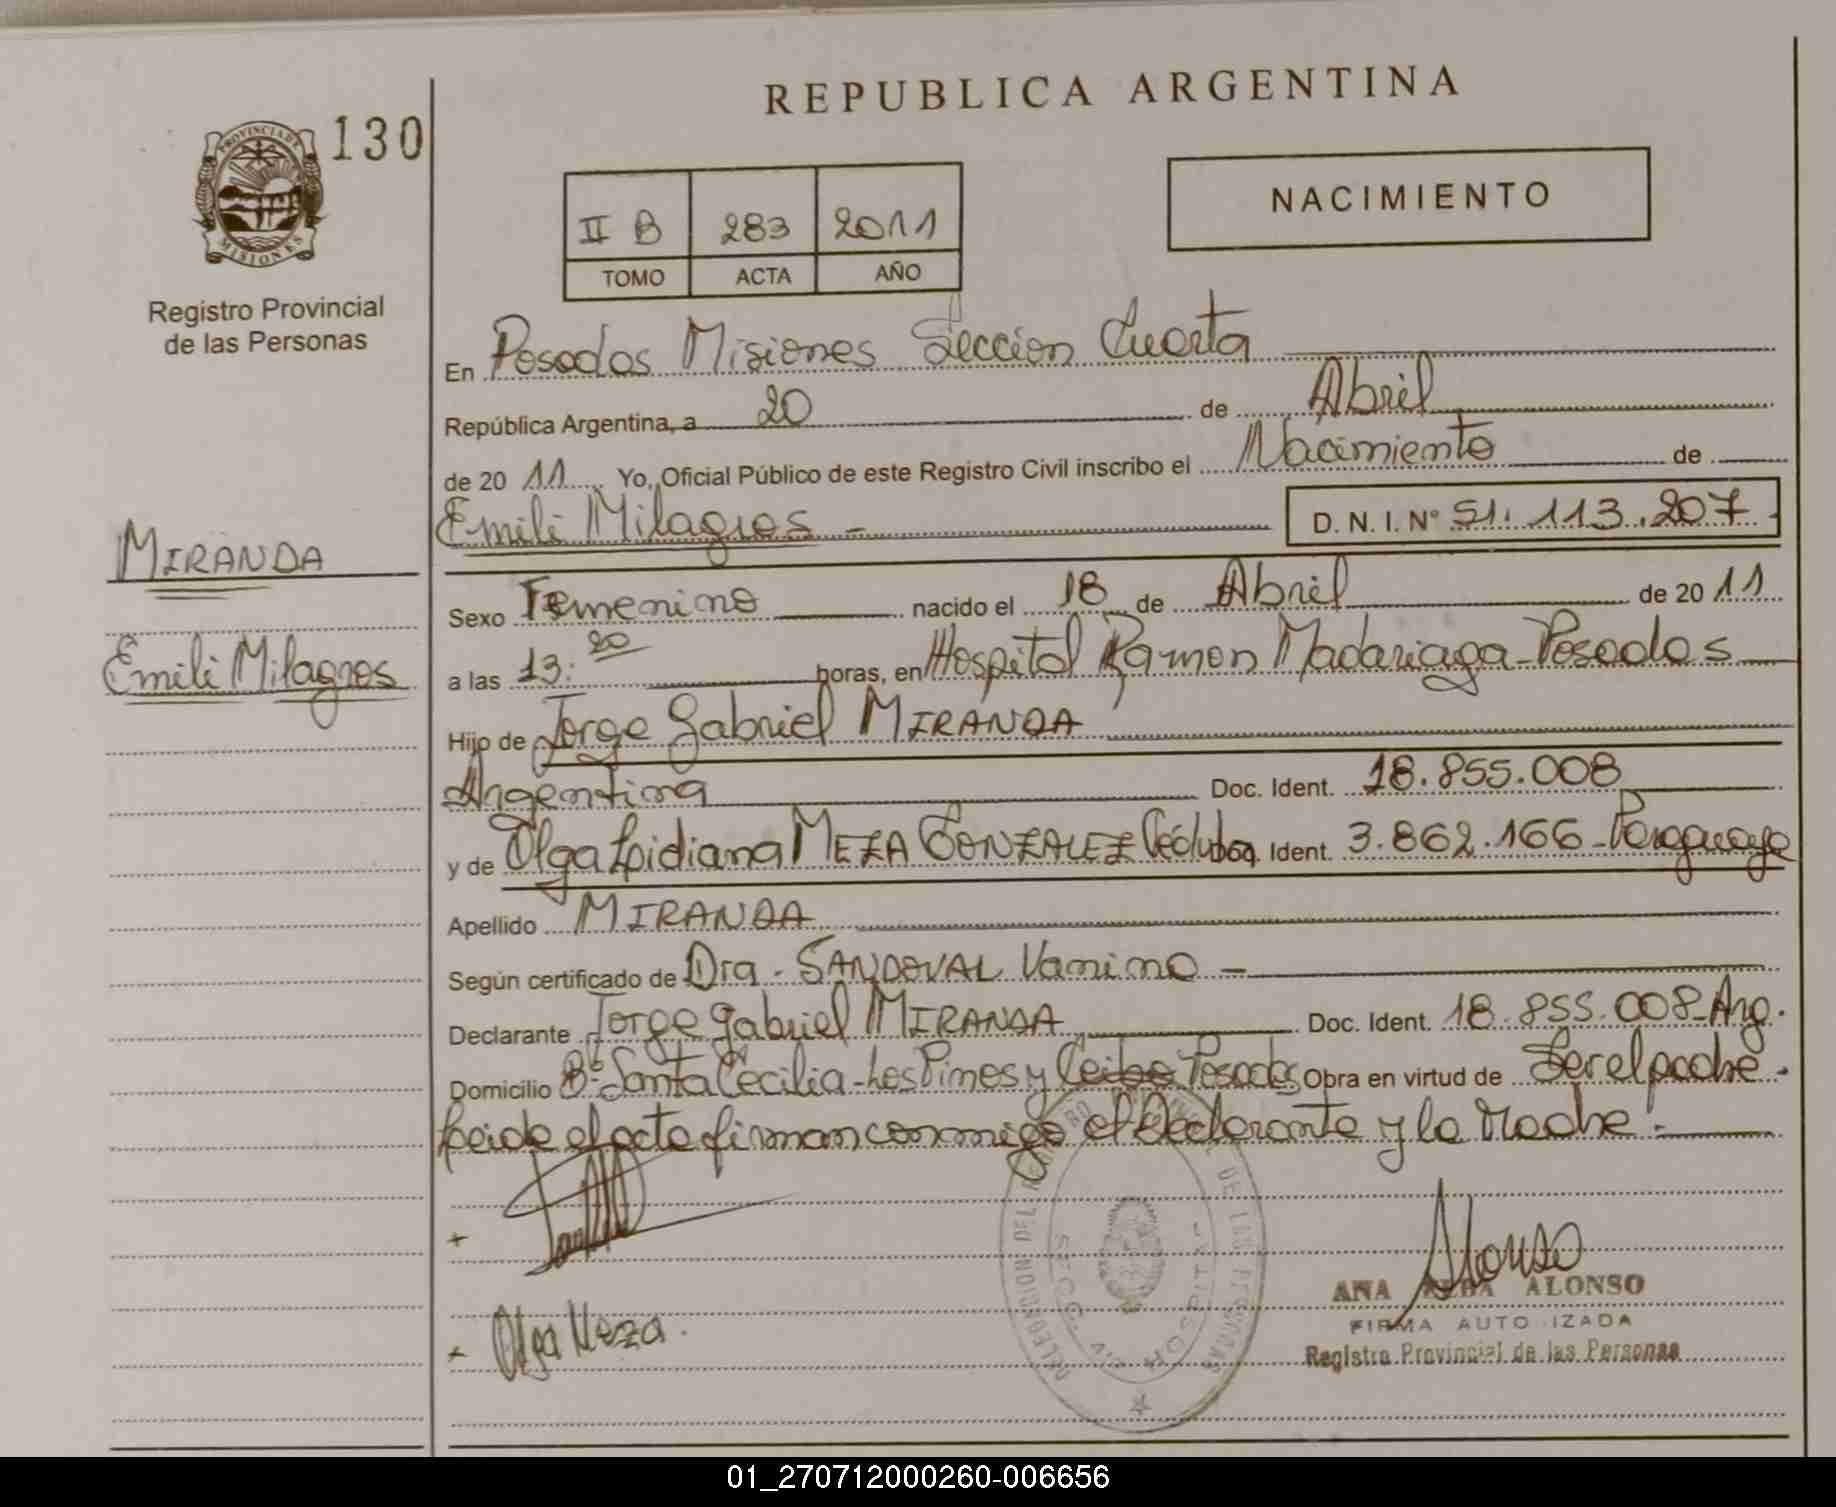 REPUBLICA ARGENTINA
130
PROVINCIA DE
MISIONES
Registro Provincial
de las Personas
NACIMIENTO
II B 283 2011
TOMO ACTA AÑO
En Posadas Misiones Seccion Cuarta
República Argentina, a 20 de Abril
de 20 11 Yo, Oficial Público de este Registro Civil inscribo el Nacimiento de
Emili Milagros - D. N. I. Nº 51.113.207
MIRANDA
Emili Milagros
Sexo Femenino nacido el 18 de Abril de 20 11
a las 13:20 horas, en Hospital Ramon Madariaga - Posadas
Hijo de Jorge Gabriel MIRANDA
Argentina Doc. Ident. 18.855.008
y de Olga Lidiana MEZA GONZALEZ Cédula Doc. Ident. 3.862.166 - Paraguaya
Apellido MIRANDA
Según certificado de Dra. SANDOVAL Vanina -
Declarante Jorge Gabriel MIRANDA Doc. Ident. 18.855.008 - Arg.
Domicilio Bº Santa Cecilia - Los Pinos y Ceibo Posadas Obra en virtud de Ser el padre.
Leida el acta firman conmigo el Declarante y la Madre.
Olga Meza.
DELEGACION DEL REGISTRO PROVINCIAL DE LAS PERSONAS
HOSPITAL
Alonso
ANA ALBA ALONSO
FIRMA AUTO IZADA
Registro Provincial de las Personas
01_270712000260-006656